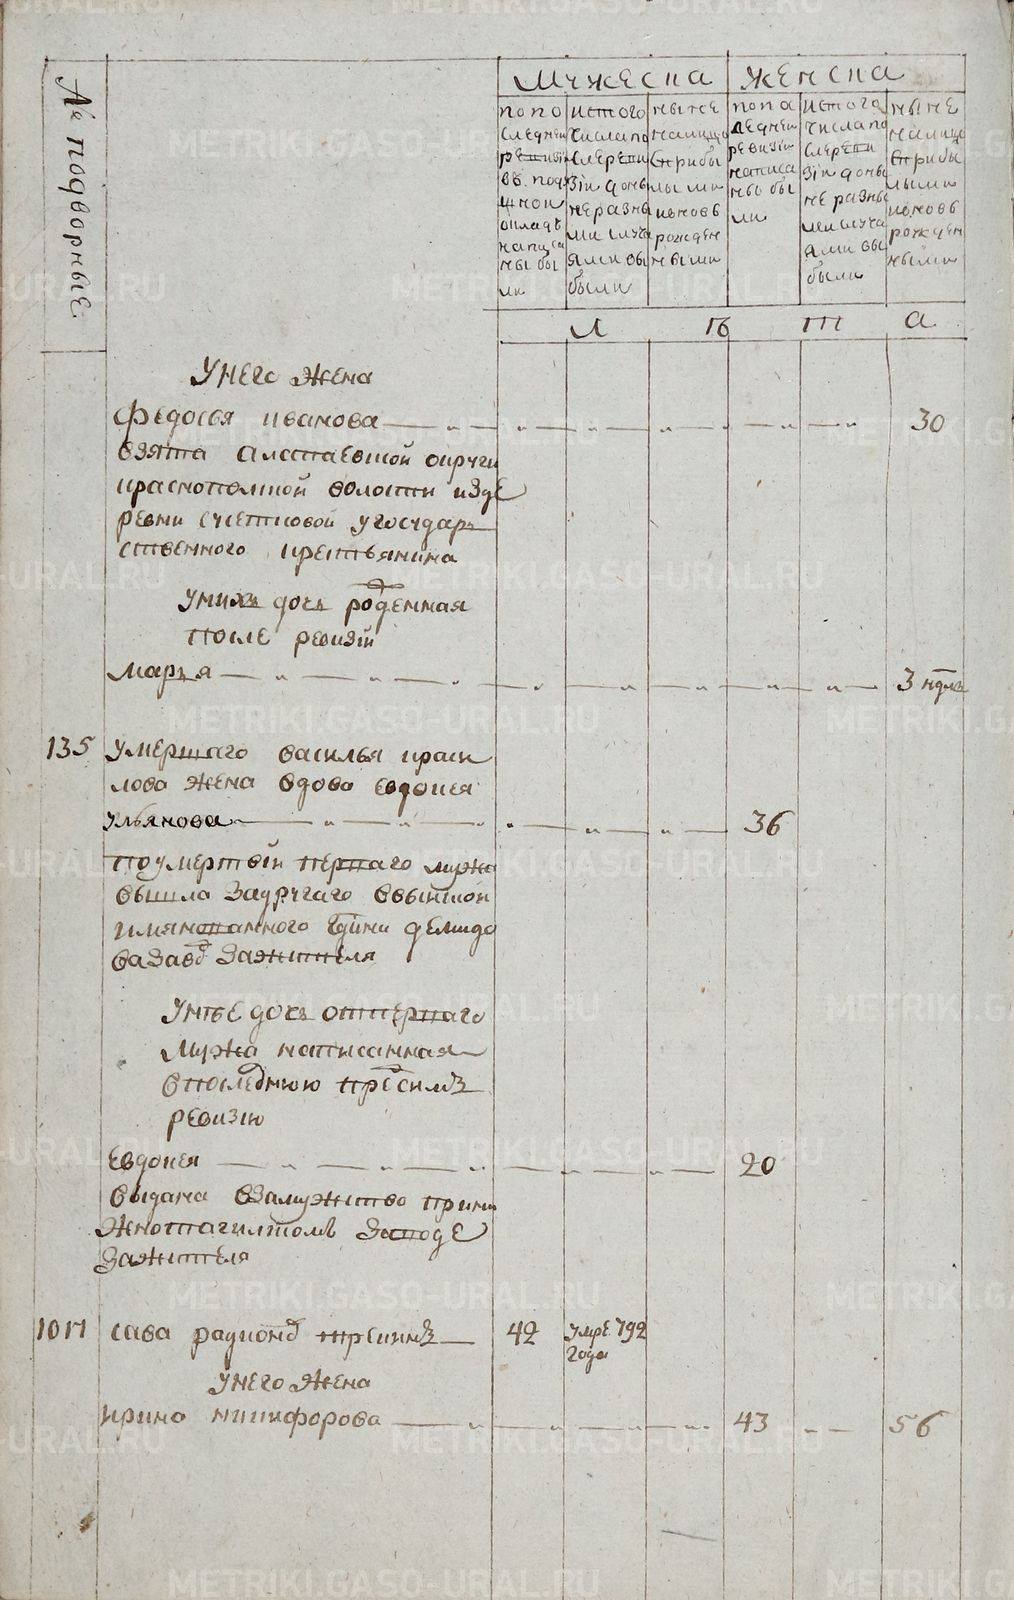 № подворные
Мужеска
Женска
попо
следней
ревизіи
въ под
шной
окладѣ
написа
ны бы
ли
истого
числапо
слереви
зіи доны
неразны
ми случа
ями вы
были
ныне
налицо
сприбы
лыми
ивновь
рожден
ными
попо
следней
ревизіи
написа
ны бы
ли
истого
числапо
слереви
зіи доны
не разны
мислуча
ями вы
были
ныне
налицо
сприбы
лыми
ивновь
рожден
ными
л ѣ т а
Унего жена
федосья иванова 30
взята алапаевской округи
краснополской волости изде
ревни угосудар
ственного крестьянина
Унихъ дочь роденная
после ревизіи
марья 3 ндлъ
135 умершаго василья краси
лова жена вдова евдокея
ульянова 36
поумертвіи перваго мужа
вышла задругаго ввыйской
демидо
вазавод зажителя
Унее дочь отперваго
мужа написанная
впоследнюю предсимъ
ревизію
евдокея 20
выдана взамужство прини
жнотагилском заводе
зажителя
1017 сава радионов 42 умре 792
года
Унего жена
ирина никифорова 43 56
METRIKI.GASO-URAL.RU